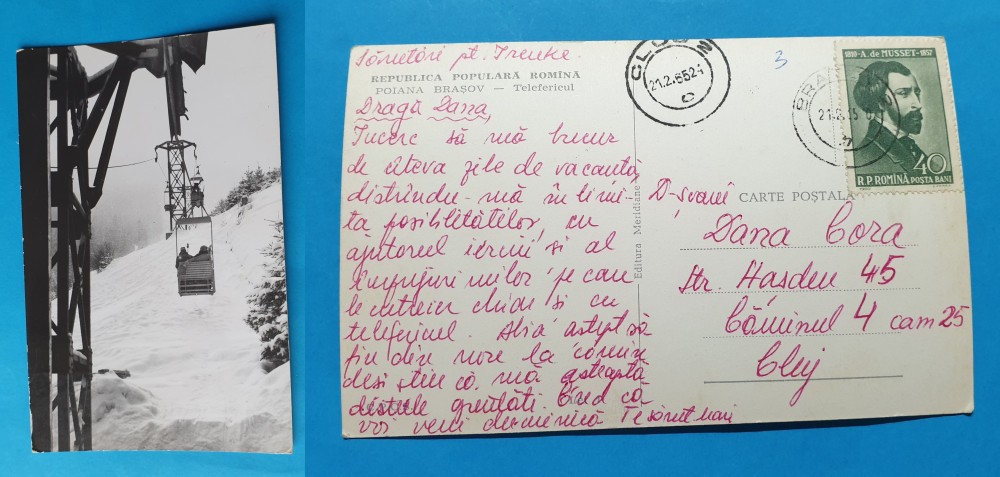 Sărutări pt. Irenke
REPUBLICA POPULARĂ ROMÎNĂ
POIANA BRAȘOV — Telefericul
Dragă Dana,
Încerc să mă bucur
de câteva zile de vacanță,
distrându-mă în limi-
ta posibilităților, cu
ajutorul iernii și al
împrejurimilor pe care
le cutreier chiar și cu
telefericul. Abia aștept să
fiu din nou la cămin
deși știu că mă așteaptă
destule greutăți. Cred că
voi veni duminică Te sărut
Editura Meridiane
CLUJ 2
21.2.65 24
c
3
BRA
21.2.65
1810-A. de MUSSET-1857
40
R.P. ROMÎNĂ POSTA BANI
CARTE POȘTALĂ
D-șoarei
Dana Cora
str. Hașdeu 45
Căminul 4 cam 25
Cluj